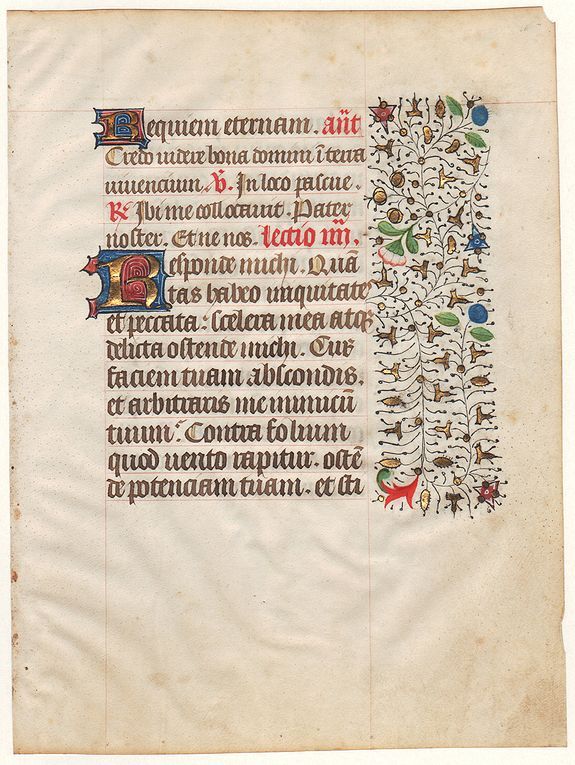 Requiem eternam. añt
Credo videre bona domini ī terra
viventium. V̄. In loco pascue.
R̄ Ibi me collocavit. Pater
noster. Et ne nos. lectio iiii.
Responde michi. Quā
tas habeo iniquitates
et peccata: scelera mea atq
delicta ostende michi. Cur
faciem tuam abscondis.
et arbitraris me inimicū
tuum? Contra folium
quod vento rapitur. ostē
de potenciam tuam. et sti